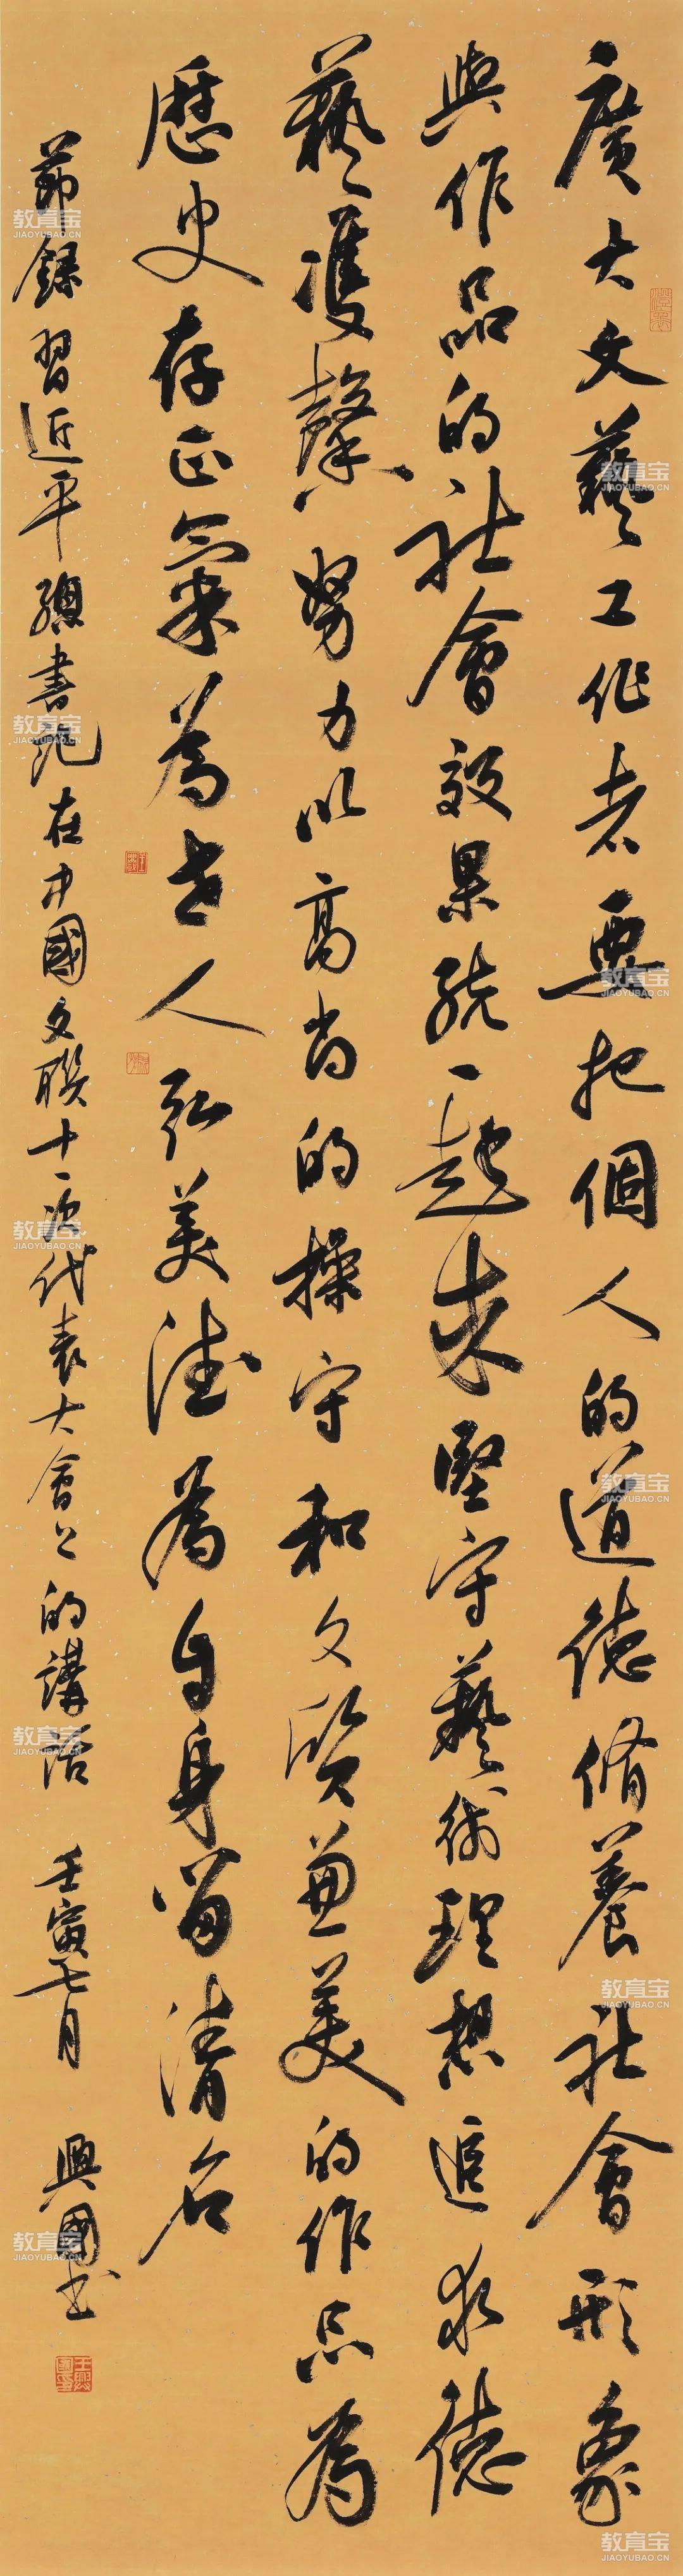 廣大文藝工作者要把個人的道德脩養社會形象
與作品的社會效果統一起來堅守藝術理想追求德
藝雙馨努力以高尚的操守和文質兼美的作品為
歷史存正氣為世人弘美德為自身留清名
節錄習近平總書記在中國文聯十一次代表大會上的講話 壬寅七月 興國書
王興國印
教育宝
JIAOYUBAO.CN